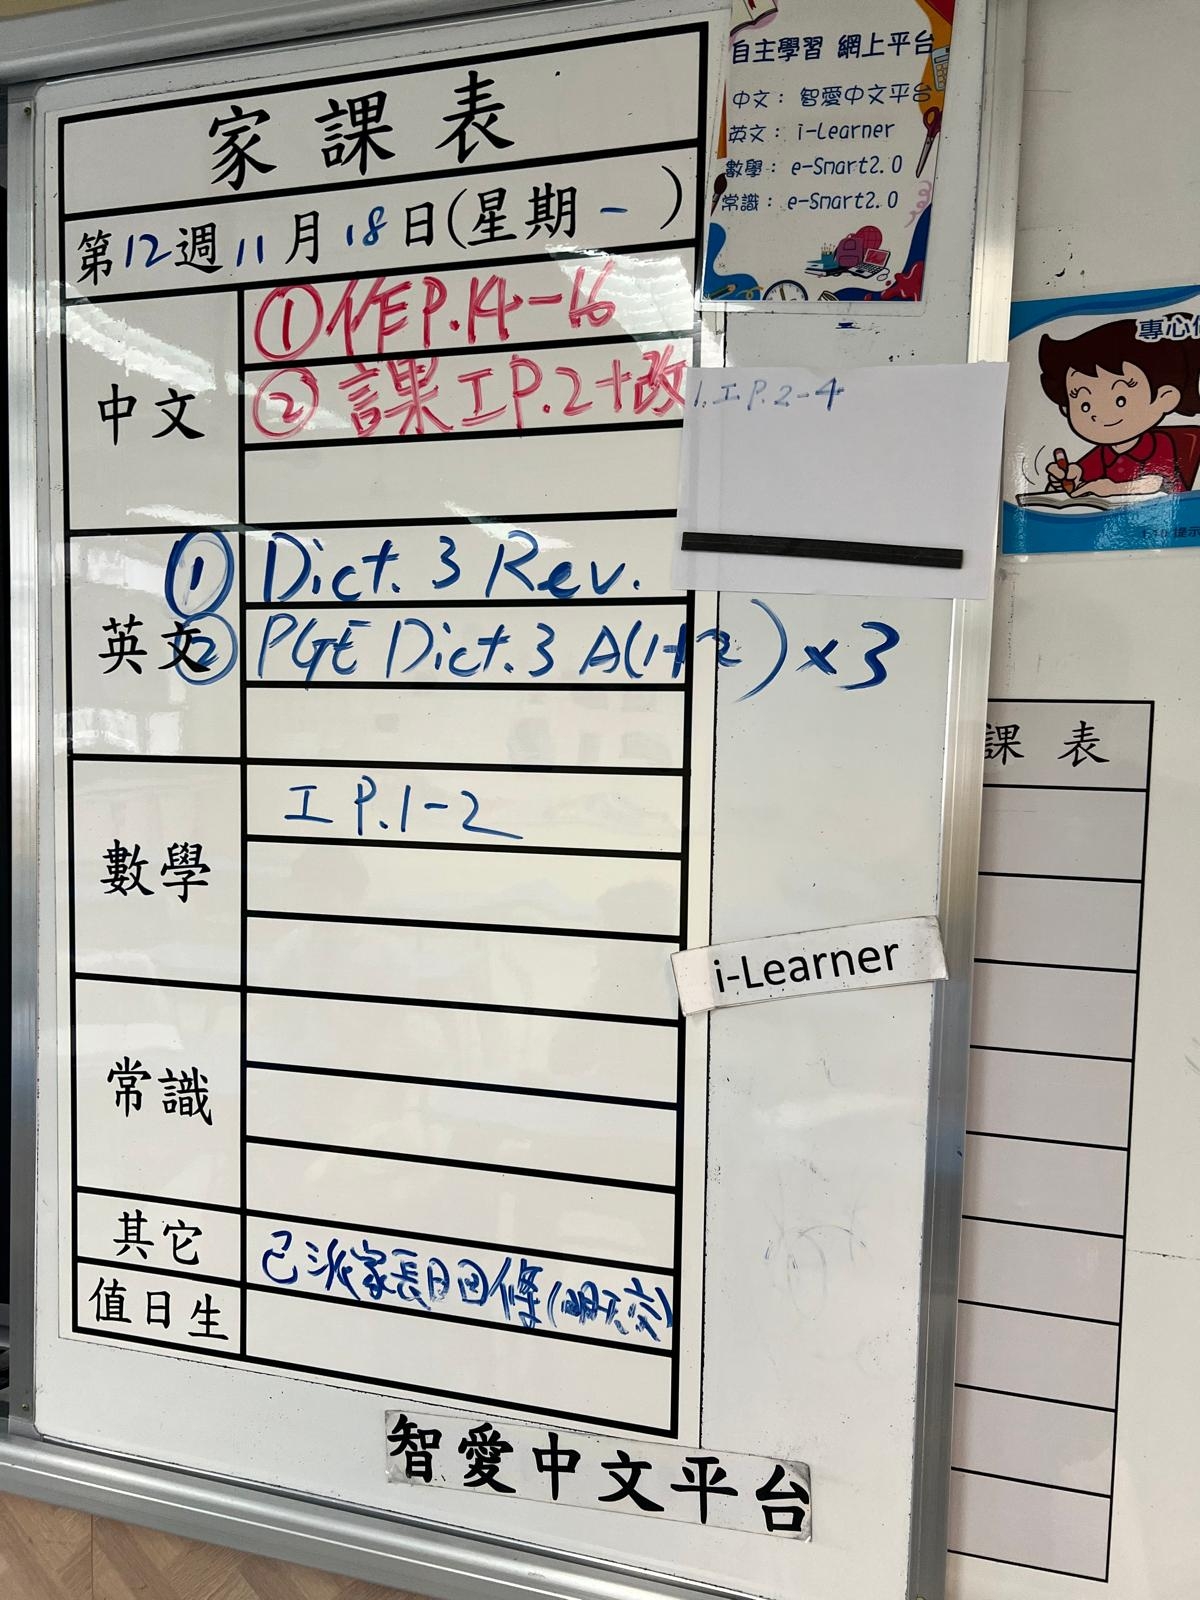 家課表
第12週11月18日(星期一)
中文
①作P.14-16
②課工P.2+改
英文
①Dict. 3 Rev.
②PGE Dict. 3 A(1+2)x3
數學
工P.1-2
常識
其它
已派家長日回條(明天交)
值日生
智愛中文平台
自主學習 網上平台
中文：智愛中文平台
英文：i-Learner
數學：e-Smart2.0
常識：e-Smart2.0
1.工P.2-4
i-Learner
專心
提示
課表